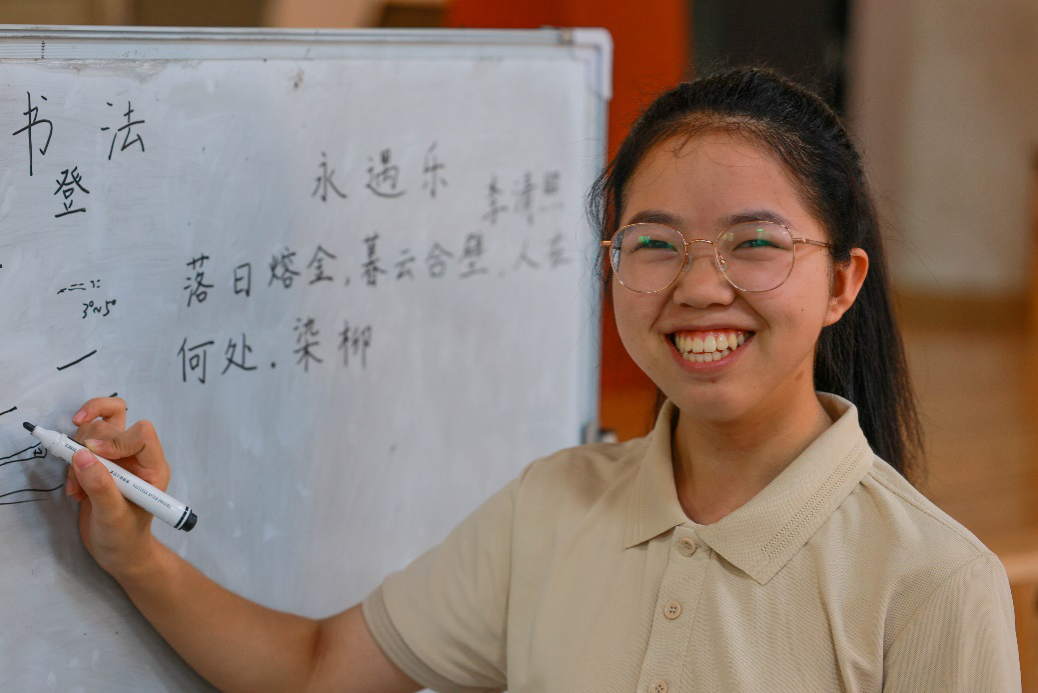 书法
登
永遇乐
李清照
落日熔金,暮云合壁,人在
3°~5°
何处.染柳